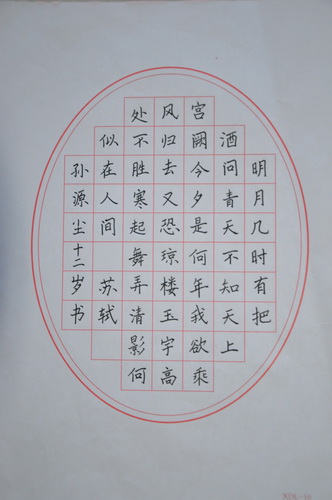 明月几时有把
酒问青天不知天上
宫阙今夕是何年我欲乘
风归去又恐琼楼玉宇高
处不胜寒起舞弄清影何
似在人间 苏轼
孙源尘十二岁书